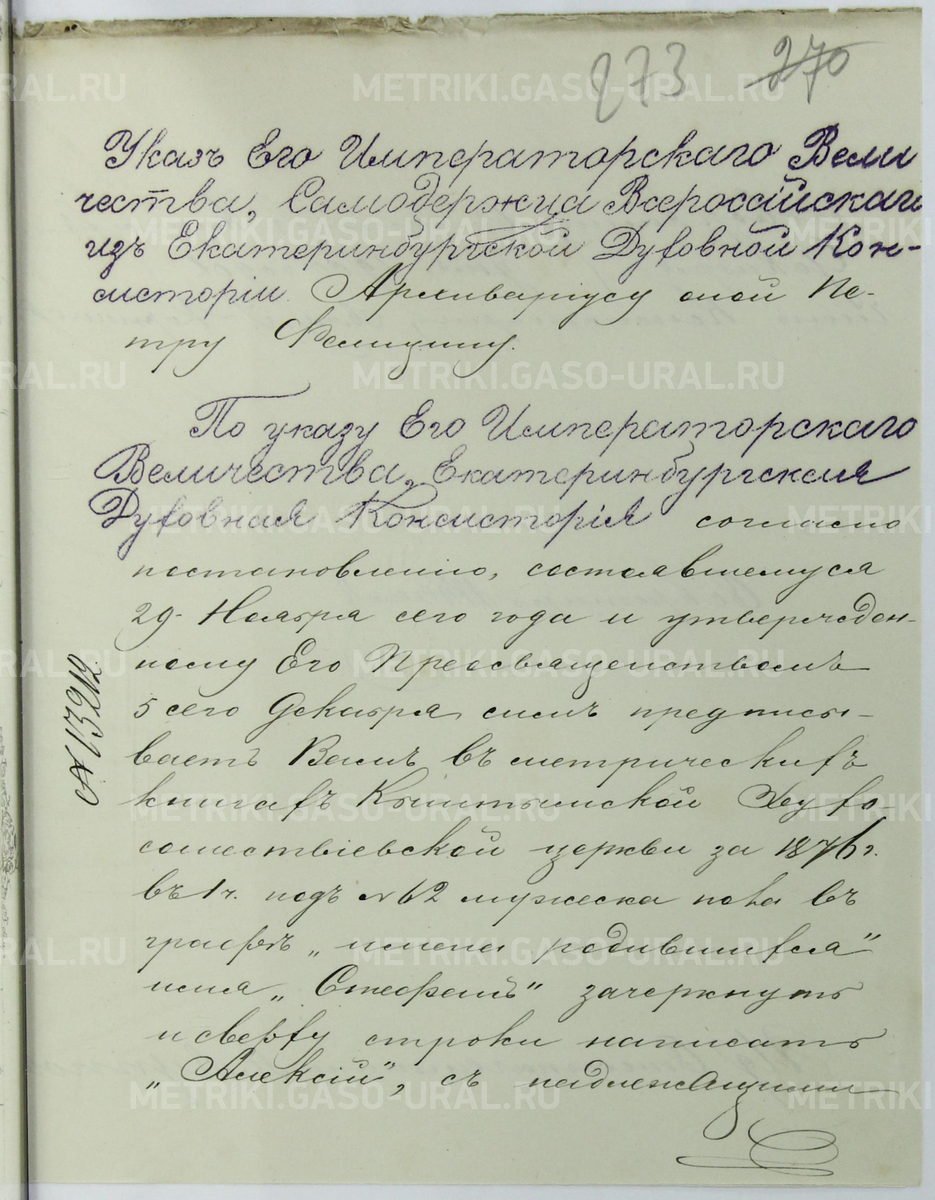 273 270
Указъ Его Императорскаго Вели
чества, Самодержца Всероссійскаго
изъ Екатеринбургской Духовной Кон-
систоріи Архиваріусу оной Пе-
тру
По указу Его Императорскаго
Величества, Екатеринбургская
Духовная Консисторія согласно
постановленію, состоявшемуся
29 Ноября сего года и утвержден-
ному Его Преосвященствомъ
5 сего Декабря симъ предписы-
ваетъ Вамъ въ метрическихъ
книгахъ Кыштымской Духо-
сошествіевской церкви за 1876 г.
въ 1 ч. подъ №62 мужеска пола въ
графѣ „имена родившихся"
имя „Стефанъ" зачеркнуть
и сверху строки написать
„Алексій", съ надлежащими
№13212
METRIKI.GASO-URAL.RU